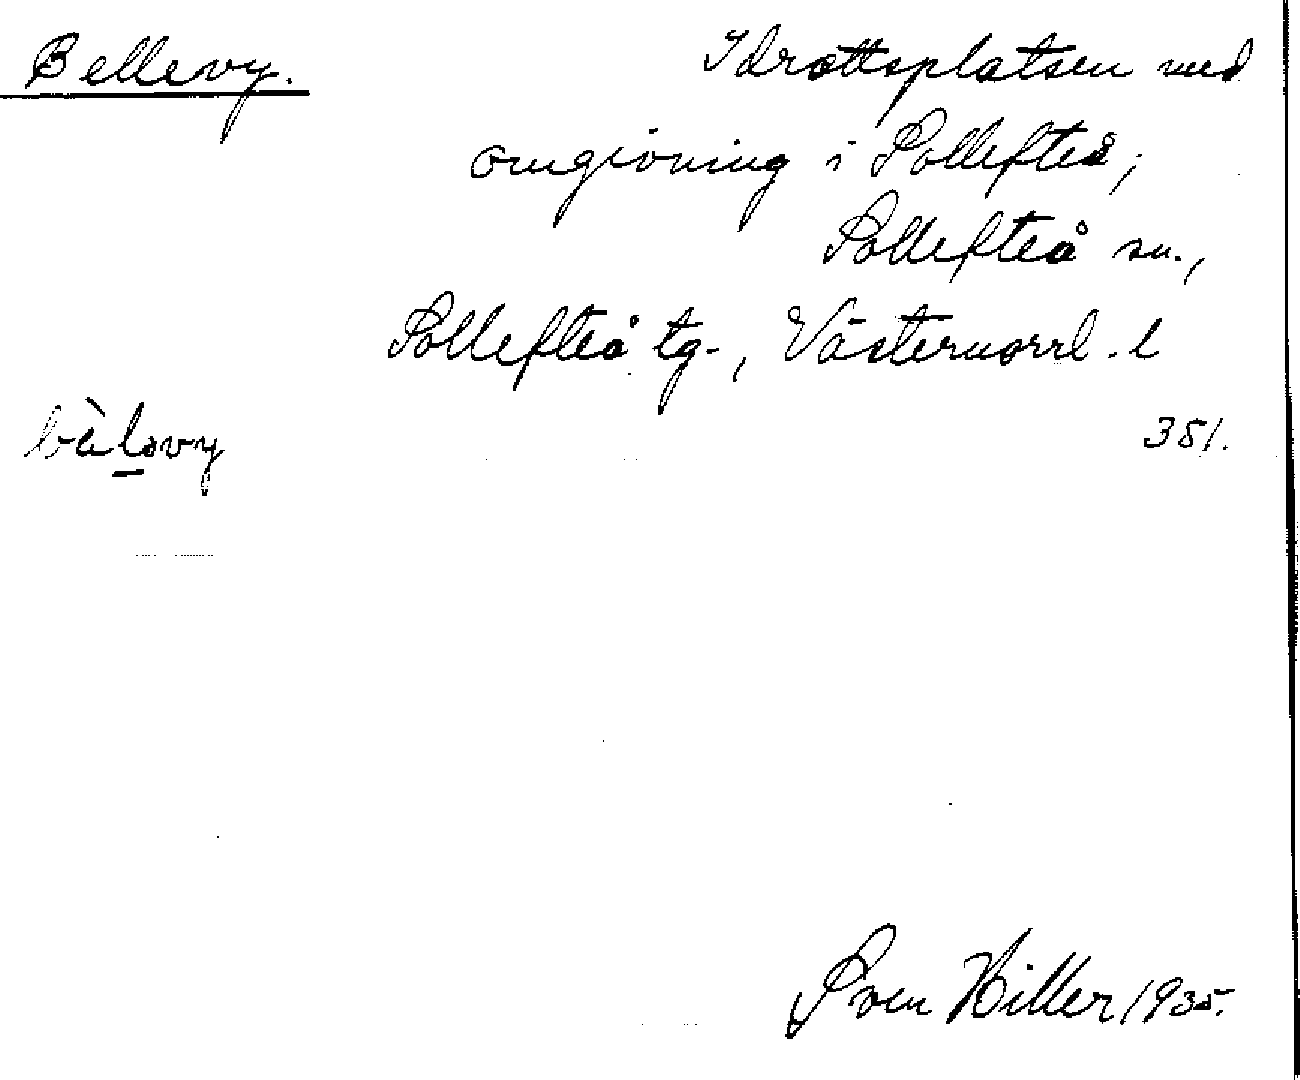 Bellevy.
Idrottsplatsen med
omgivning i Sollefteå,
Sollefteå sn.,
Sollefteå tg., Västernorrl. l
bàləvy
351.
Sven Hiller 1935.